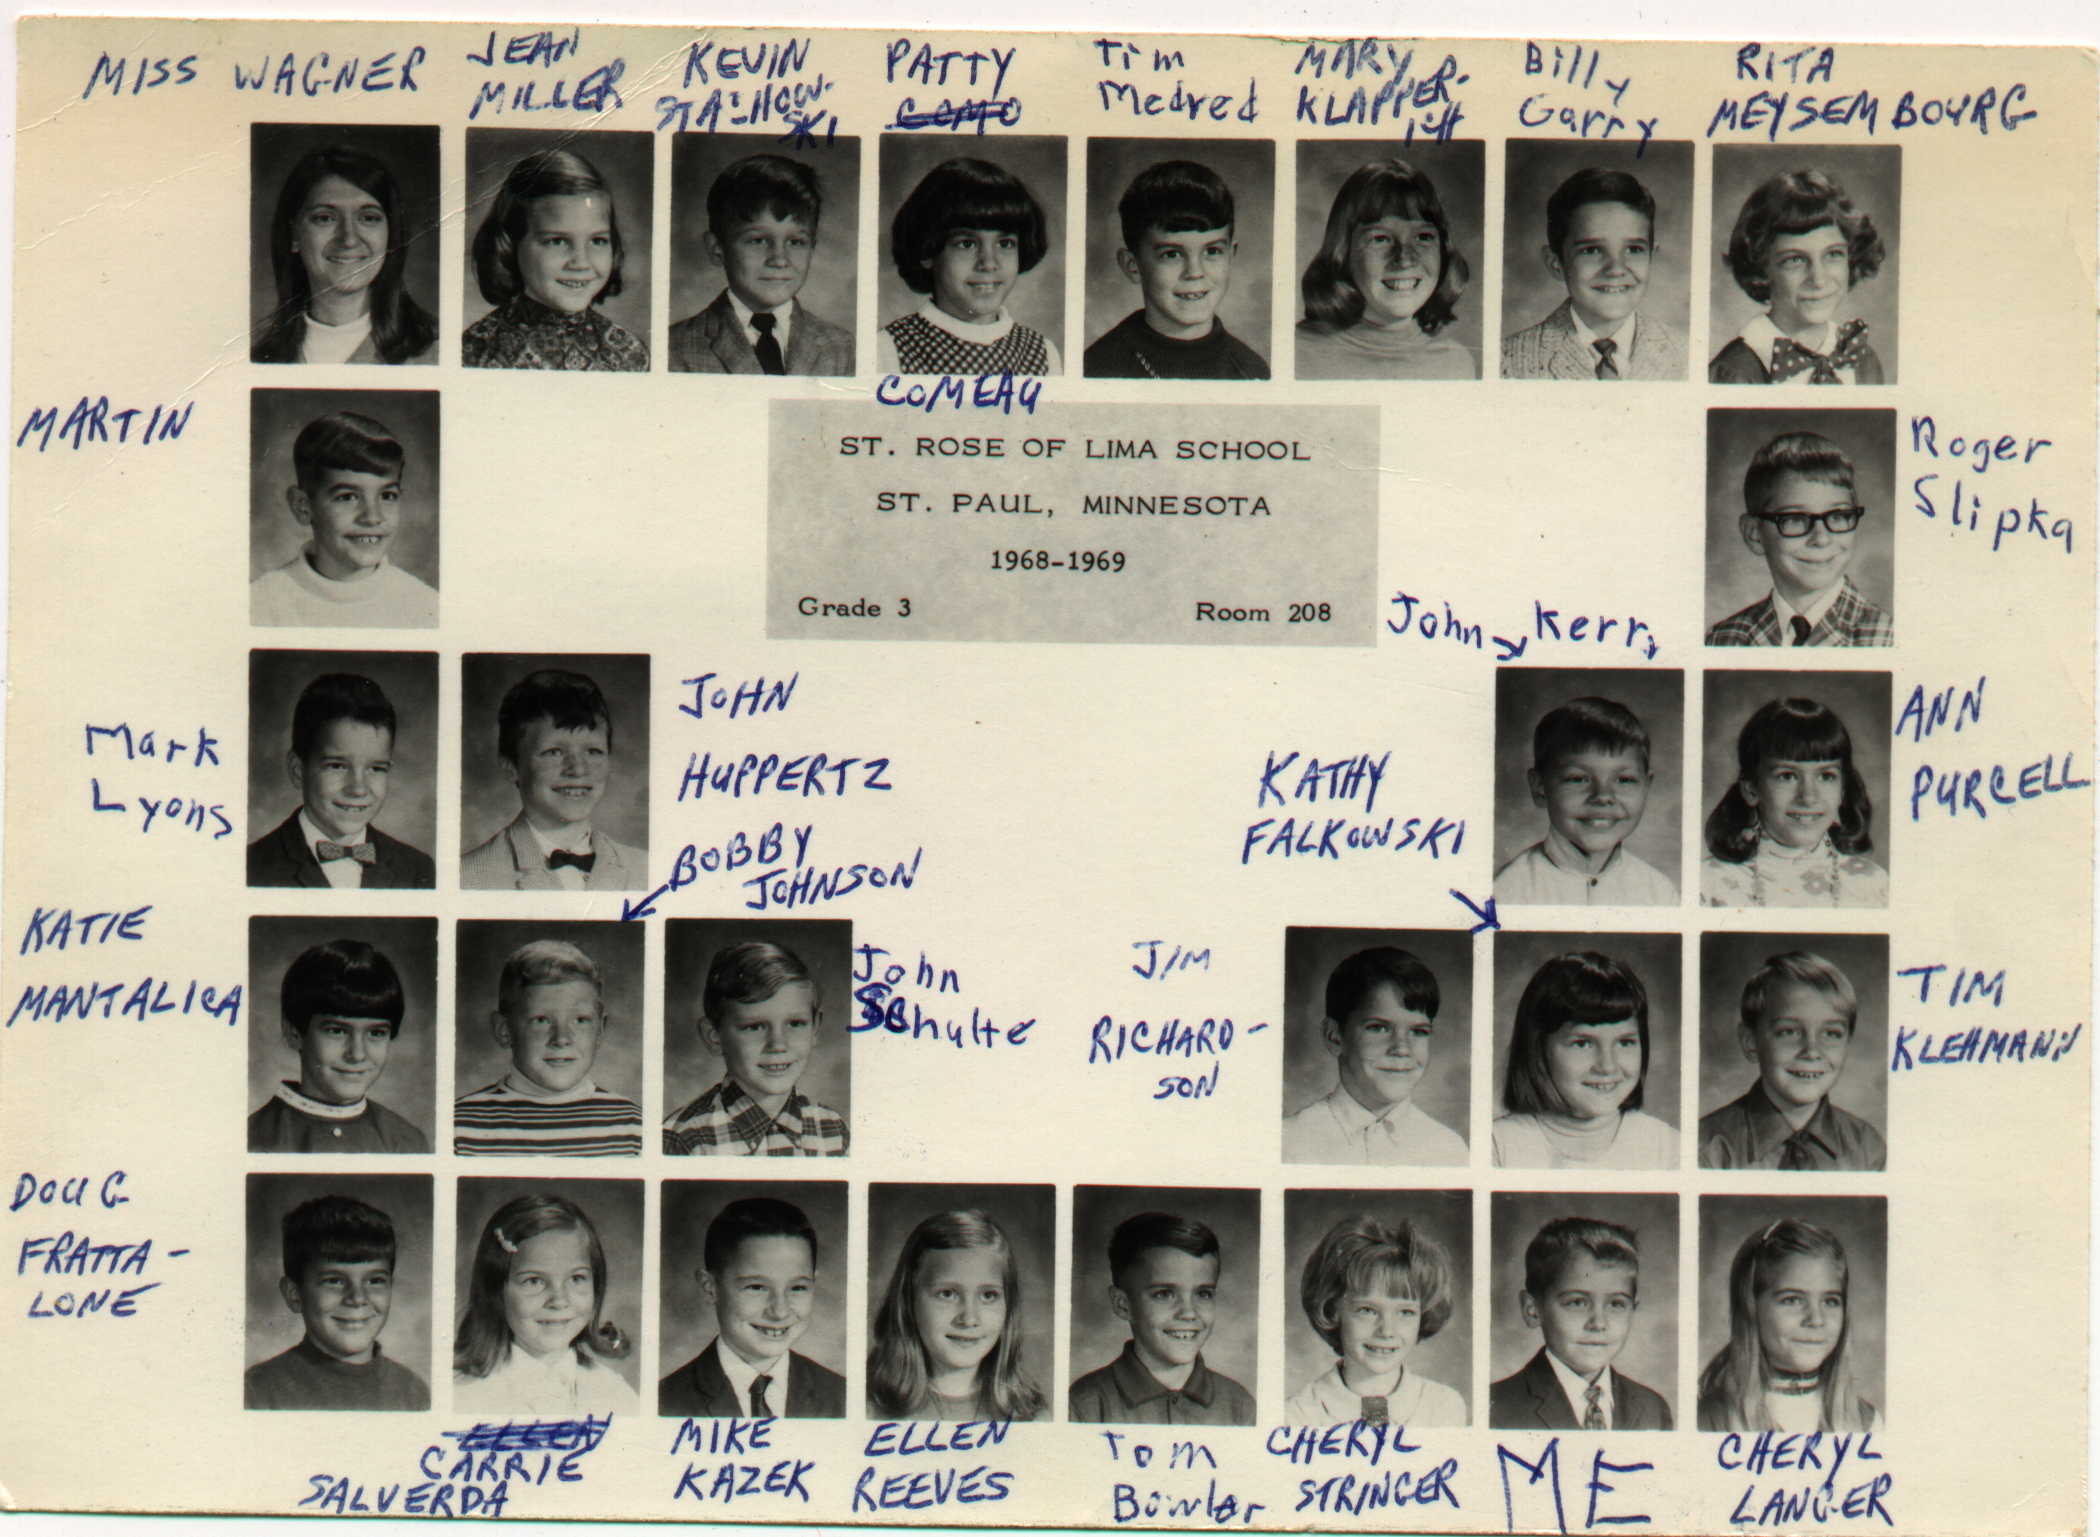 MISS WAGNER
JEAN
MILLER
KEVIN
STA-HOW-
SKI
PATTY
COMO
Tim
Medved
MARY
KLAPPER-
ICH
Billy
Garry
RITA
MEYSEMBOURG
COMEAU
MARTIN
ST. ROSE OF LIMA SCHOOL
ST. PAUL, MINNESOTA
1968-1969
Grade 3 Room 208
Roger
Slipka
John Kerry
Mark
Lyons
JOHN
HUPPERTZ
ANN
PURCELL
KATHY
FALKOWSKI
BOBBY
JOHNSON
KATIE
MANTALICA
John
Schulte
JIM
RICHARD-
SON
TIM
KLEHMANN
DOUG
FRATTA-
LONE
ELLEN
CARRIE
SALVERDA
MIKE
KAZEK
ELLEN
REEVES
Tom
Bowlar
CHERYL
STRINGER
ME
CHERYL
LANGER